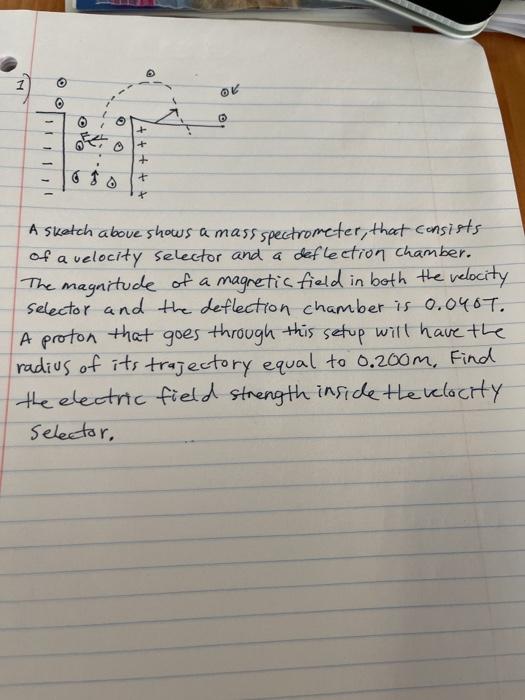 1)
A sketch above shows a mass spectrometer, that consists
of a velocity selector and a deflection chamber.
The magnitude of a magnetic field in both the velocity
selector and the deflection chamber is 0.040T.
A proton that goes through this setup will have the
radius of its trajectory equal to 0.200m. Find
the electric field strength inside the velocity
selector.